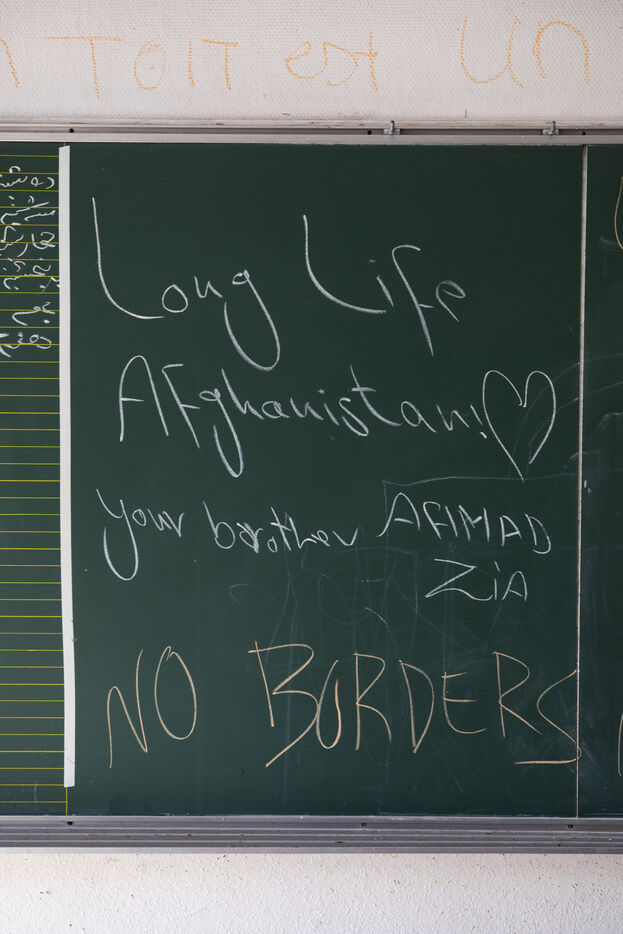 TOIT est un
Long Life
Afghanistan!
your borother AHMAD
ZiA
NO BORDERS